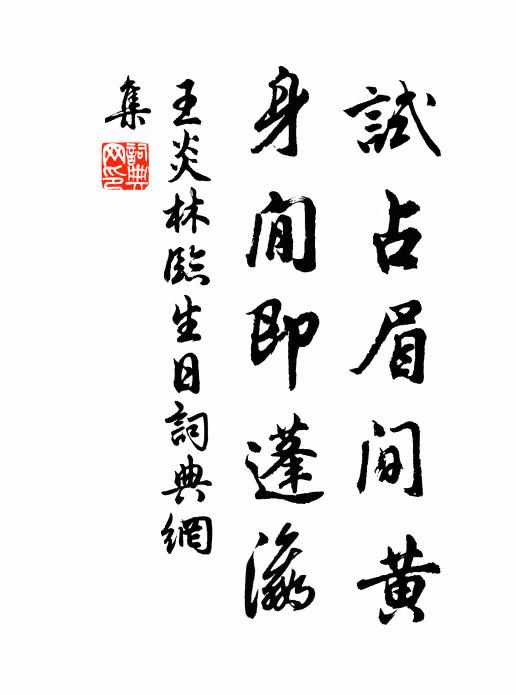 試占眉間黄
身閒即蓬瀛
王炎林臨生日詞典網
集
詞典網印